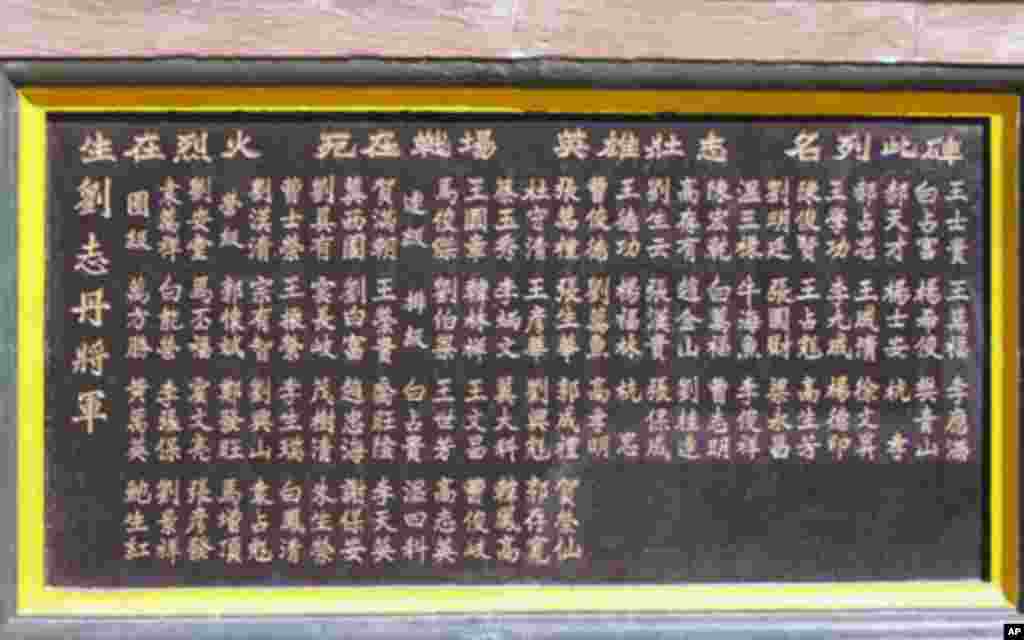 生在烈火 死在戰場 英雄壯志 名列此碑
劉志丹將軍
團級 萬方勝 黃萬英
袁萬祥 白龍榮 李振保 劉景祥
劉安堂 馬丕福 雷文亮 張彥發
營級 郭懷斌 鄭發旺 馬增順
劉漢清 宗有智 劉興山 袁占魁
曹士榮 王振榮 李生瑞 白鳳清
劉真有 雲長岐 茂樹清 朱生榮
冀西園 劉白富 趙忠海 謝保安
賀滿朝 王榮貴 李天英
連級 排級 白占貴 溫曰科
馬俊傑 劉伯榮 王世芳 高志英
王國章 韓林祥 王文昌 曹俊岐
蔡玉秀 李炳文 冀大科 韓鳳高
杜守清 王彥華 劉興魁 郭存寬
張萬禮 張生華 郭成禮 賀登仙
曹俊德 劉萬魚 高孝明
王德功 楊福林 杭忠
劉生云 張漢貴 張保成
高存有 趙金山 劉桂連
陳宏乾 白萬福 曹志明
溫三祿 牛海魚 李俊祥
劉明廷 張國財 梁永昌
陳俊賢 王占魁 高生芳
王學功 李九成 楊德印
王咸清 徐文昇
郝天才 楊士安 杭孝
白占富 楊希俊 樊青山
王士貴 王萬福 李應滿
AP